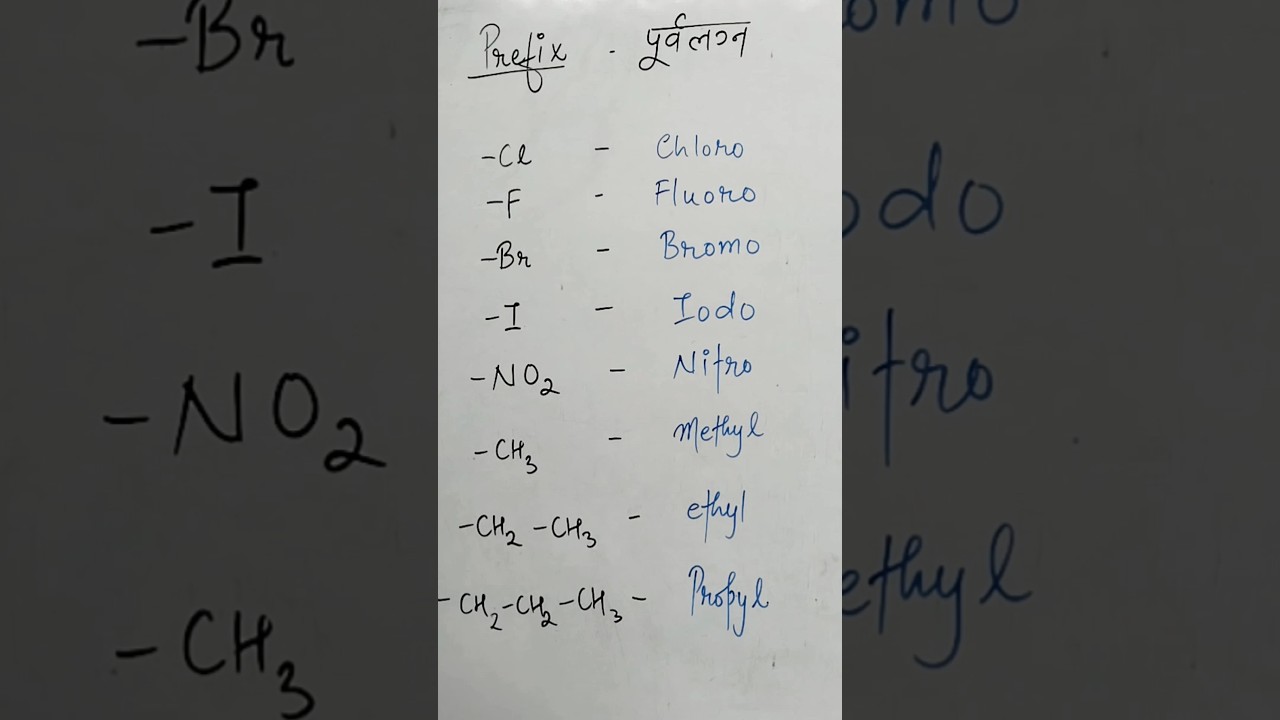 Prefix - पूर्वलग्न
-Cl - Chloro
-F - Fluoro
-Br - Bromo
-I - Iodo
-NO₂ - Nitro
-CH₃ - Methyl
-CH₂-CH₃ - ethyl
-CH₂-CH₂-CH₃ - Propyl